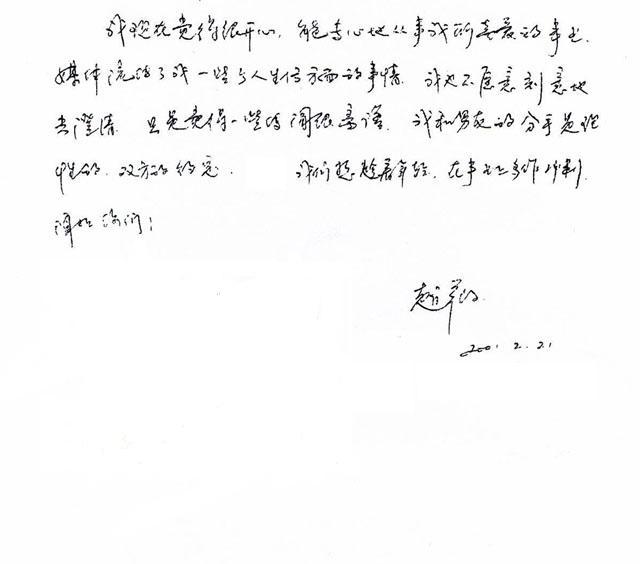 我现在觉得很开心,能专心地从事我所喜爱的事业.
媒体说了我一些个人生活方面的事情.我也不愿意刻意地
去澄清.只是觉得一些的闻很.我和男友的分手是理
性的.双方的约定. 我们想趁着年轻.在事业上多作冲刺.
谢谢你们!
赵薇
2001.2.21